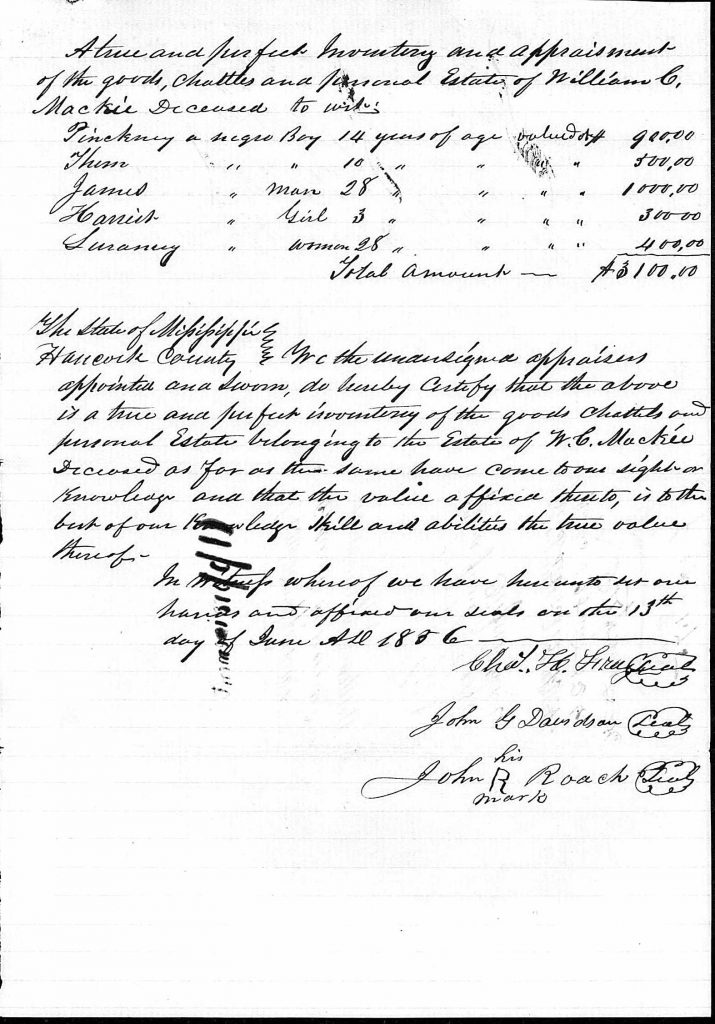 A true and perfect Inventory and appraisment
of the goods, chattles and personal Estate of William C.
Mackie Deceased to wit;
Pinckney a negro Boy 14 years of age valued at $ 900.00
Them " " 10 " " " " 500,00
James " man 28 " " " " 1000,00
Harriet " Girl 3 " " " " 30000
Suraney " woman 28 " " " " 400,00
Total amount — $3100.00
The State of Mississippi
Hancock County } We the undersigned appraisers
appointed and sworn, do hereby Certify that the above
is a true and perfect inventory of the goods Chattels and
personal Estate belonging to the Estate of W. C. Mackie
Deceased as far as the same have come to our sight or
Knowledge and that the value affixed thereto, is to the
best of our Knowledge skill and abilities the true value
thereof-
In witness whereof we have hereunto set our
hands and affixed our seals on the 13th
day of June AD 1856
Chas. H. Seal
John G Davidson Seal
his
John R Roach Seal
mark